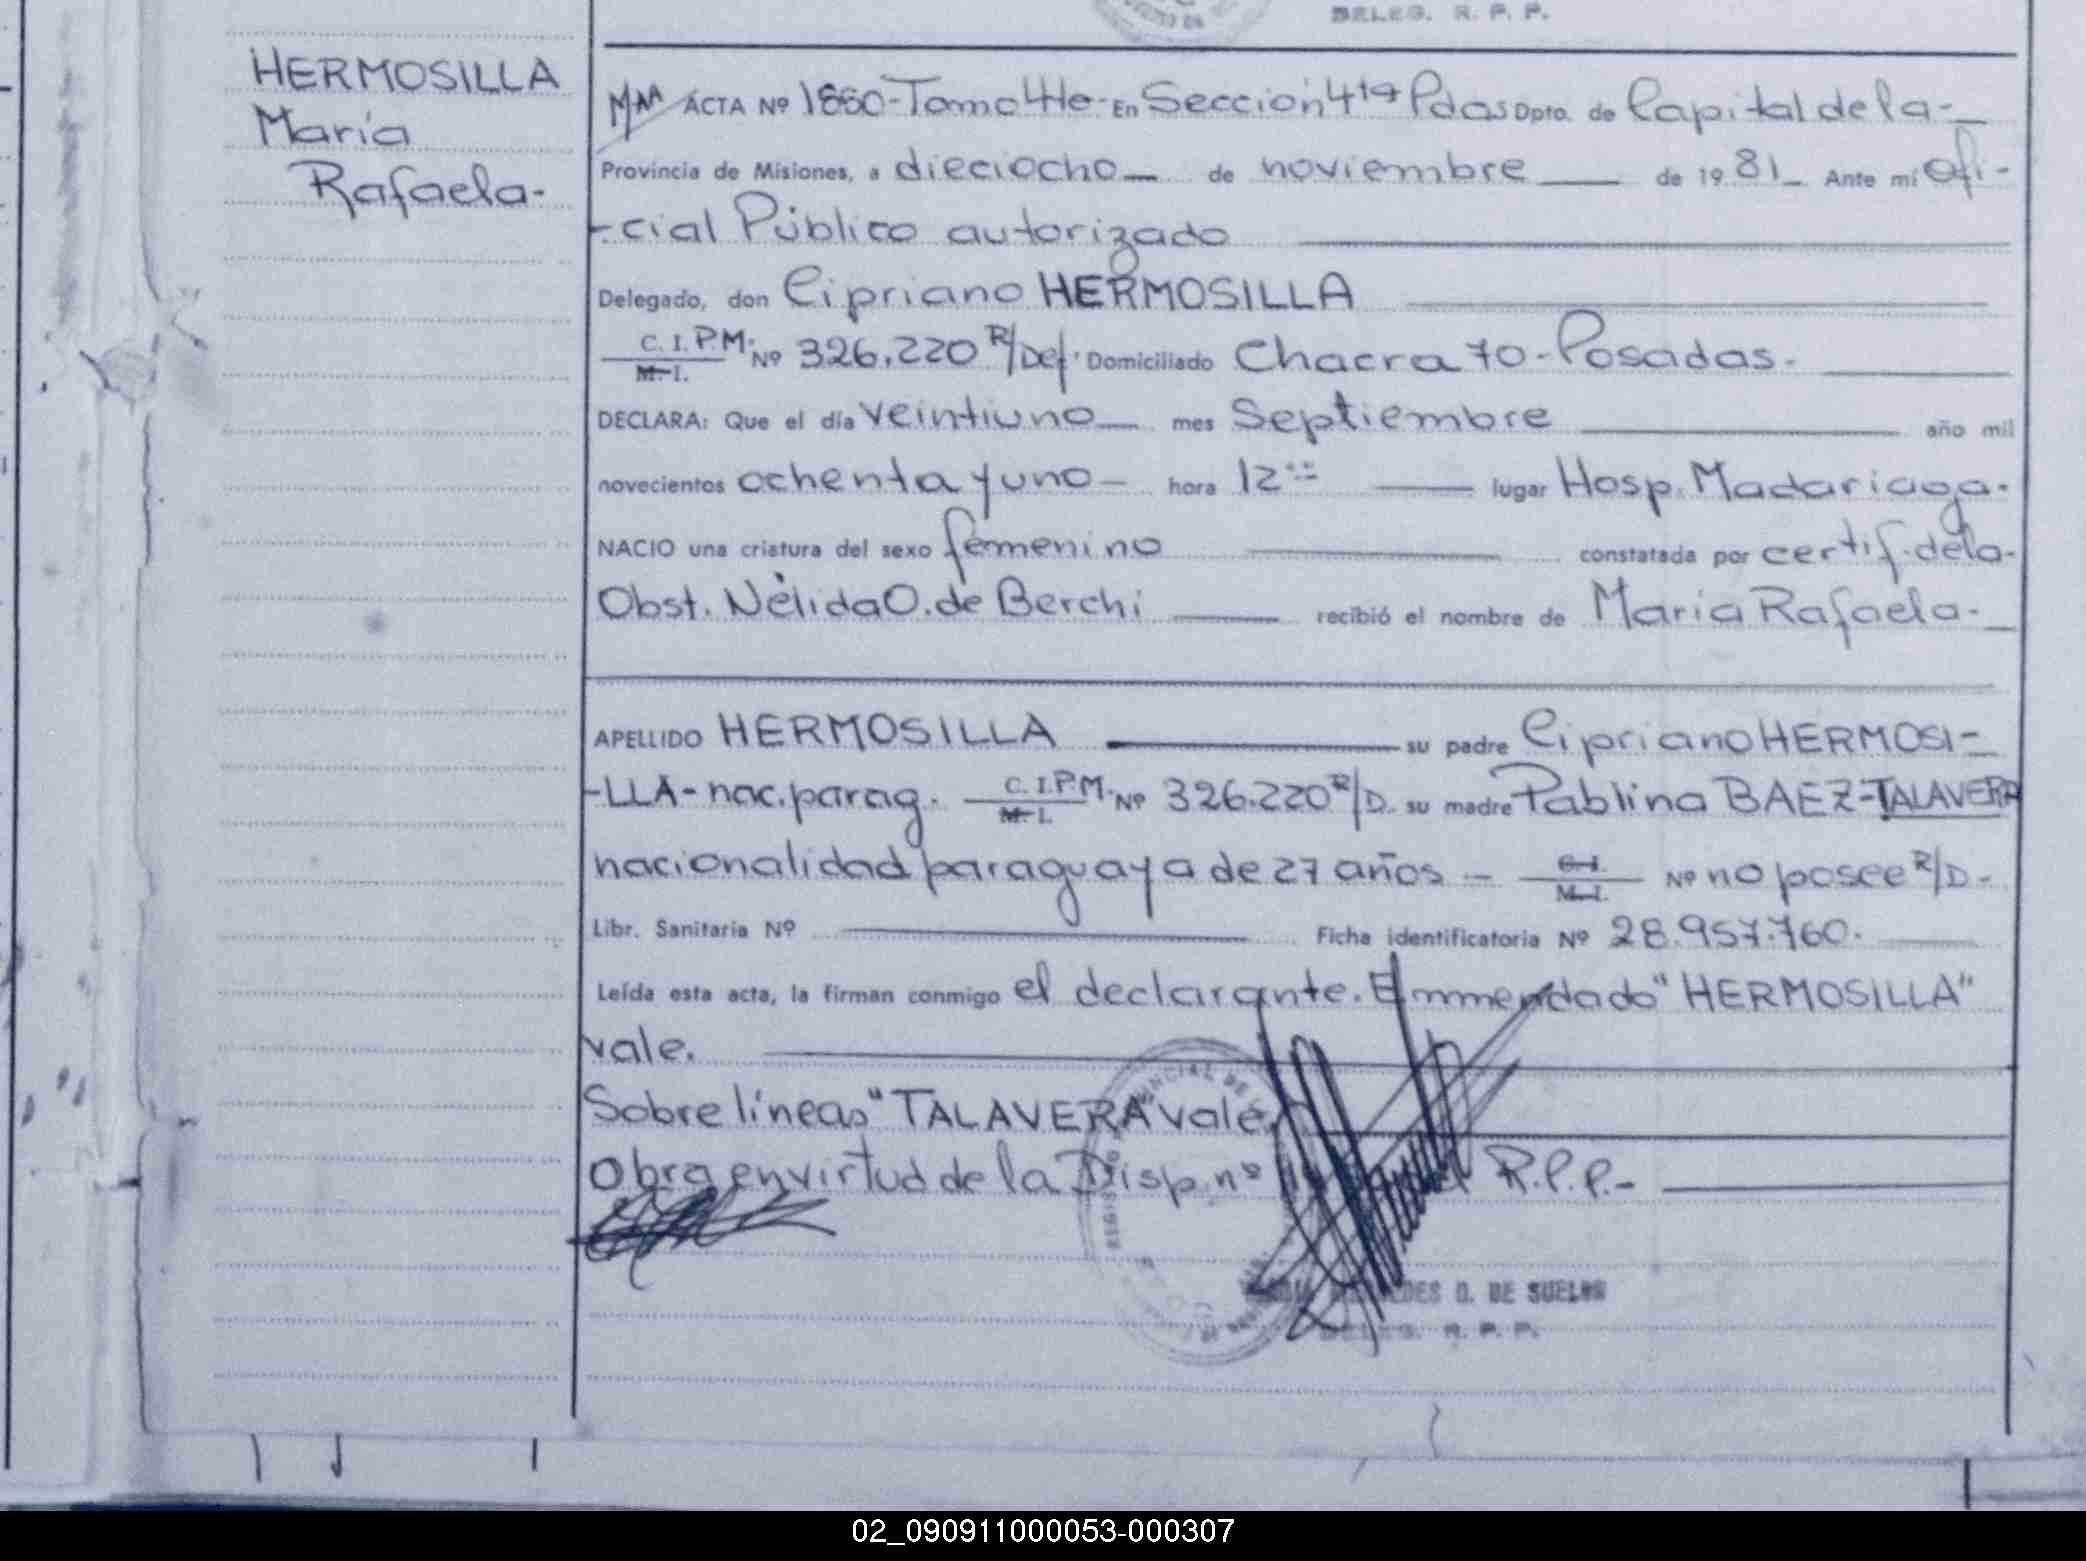 DELEG. R. P. P.
HERMOSILLA
María
Rafaela-
ACTA Nº 1880-Tomo 4to- En Sección 4ta Pdas Dpto. de Capital de la-
Provincia de Misiones, a dieciocho de noviembre de 1981 Ante mí ofi-
-cial Público autorizado
Delegado, don Cipriano HERMOSILLA
C. I. P.M. M. I. Nº 326.220 R/Def. Domiciliado Chacra 70-Posadas.
DECLARA: Que el día veintiuno mes Septiembre año mil
novecientos ochenta y uno hora 12 lugar Hosp. Madariaga.
NACIO una criatura del sexo femenino constatada por certif. de la-
Obst. Nélida O. de Berchi recibió el nombre de María Rafaela-
APELLIDO HERMOSILLA su padre Cipriano HERMOSI-
-LLA- nac. parag. C. I. P.M. M. I. Nº 326.220 R/D. su madre Pablina BAEZ-TALAVERA
nacionalidad paraguaya de 27 años - C. I. M. I. Nº no posee R/D-
Libr. Sanitaria Nº Ficha identificatoria Nº 28.957.760.
Leída esta acta, la firman conmigo el declarante. Emmendado "HERMOSILLA"
vale.
Sobre líneas "TALAVERA" vale
Obra en virtud de la Disp. nº R.P.P.-
DES O. DE SUELOS
DELEG. R. P. P.
02_090911000053-000307